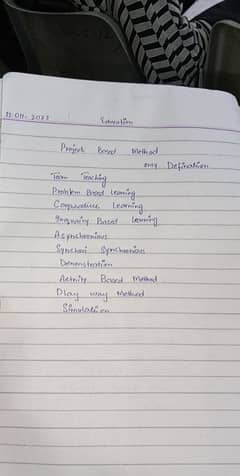 Education
Project Based Method
only Defination
Team Teaching
Problem Based Learning
Cooperative Learning
Inquiry Based Learning
Asynchronious
Synchroni Synchronious
Demonstration
Activity Based Method
Play way Method
Simulation